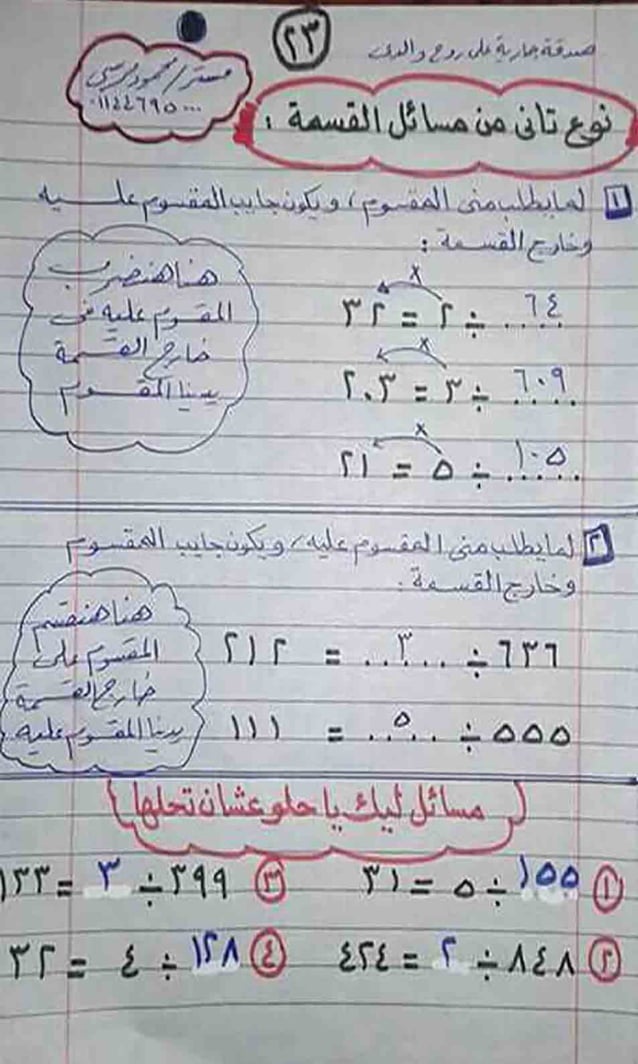 صدقة جارية على روح والدى
٢٣
مستر/ محمود مرسى
٠١١٤٤٦٩٥٠٠٠
نوع تانى من مسائل القسمة :
١ لما يطلب منى المقسوم ، ويكون جايب المقسوم عليه
وخارج القسمة :
٦٤ ÷ ٢ = ٣٢
×
٦٠٩ ÷ ٣ = ٢٠٣
×
١٠٥ ÷ ٥ = ٢١
×
هنا هنضرب
المقسوم عليه فى
خارج القسمة
يدينا المقسوم
٢ لما يطلب منى المقسوم عليه ، ويكون جايب المقسوم
وخارج القسمة :
٦٣٦ ÷ ٣ = ٢١٢
٥٥٥ ÷ ٥ = ١١١
هنا هنقسم
المقسوم على
خارج القسمة
يدينا المقسوم عليه
( مسائل ليك يا حلو عشان تحلها )
١ ١٥٥ ÷ ٥ = ٣١
٣ ٣٩٩ ÷ ٣ = ١٣٣
٢ ٨٤٨ ÷ ٢ = ٤٢٤
٤ ١٢٨ ÷ ٤ = ٣٢